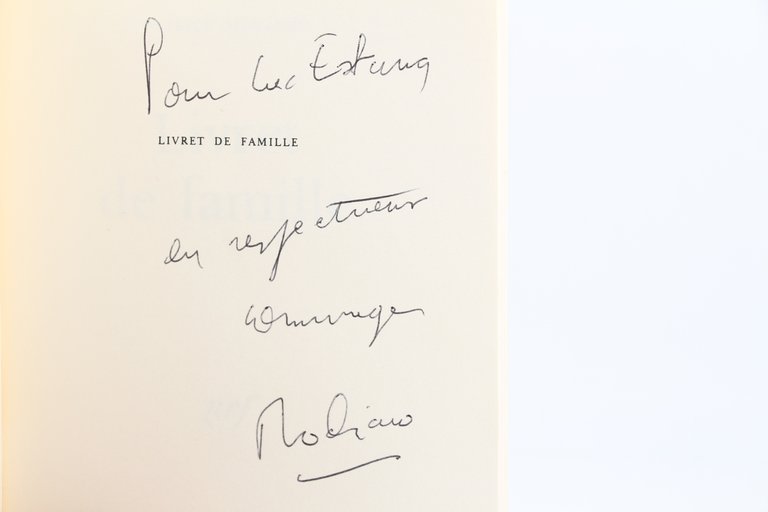 Pour Luc Estang
LIVRET DE FAMILLE
en respectueux
hommage
Modiano